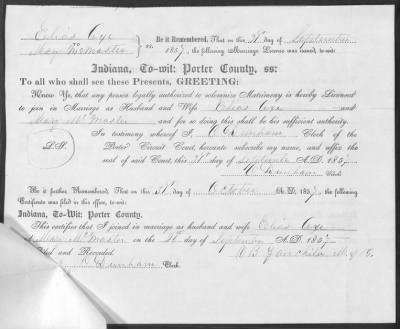 Elias Axe
to
Mary McMaster
ss:
Be it Remembered, That on this day of September 1857, the following Marriage License was issued, to-wit:
Indiana, To-wit: Porter County, ss:
To all who shall see these Presents, GREETING:
Know Ye, that any person legally authorized to solemnize Matrimony is hereby Licensed
to join in Marriage as Husband and Wife Elias Axe and
Mary McMaster and for so doing this shall be his sufficient authority.
In testimony whereof I, Dunham Clerk of the
L.S. Porter Circuit Court, hereunto subscribe my name, and affix the
seal of said Court, this day of September A.D. 1857
Dunham Clerk
Be it further Remembered, That on this day of October A.D. 1857, the following
Certificate was filed in this office, to-wit:
Indiana, To-Wit: Porter County.
This certifies that I joined in marriage as husband and wife Elias Axe
Mary McMaster on the day of September A.D. 1857
Filed and Recorded.
Dunham Clerk.